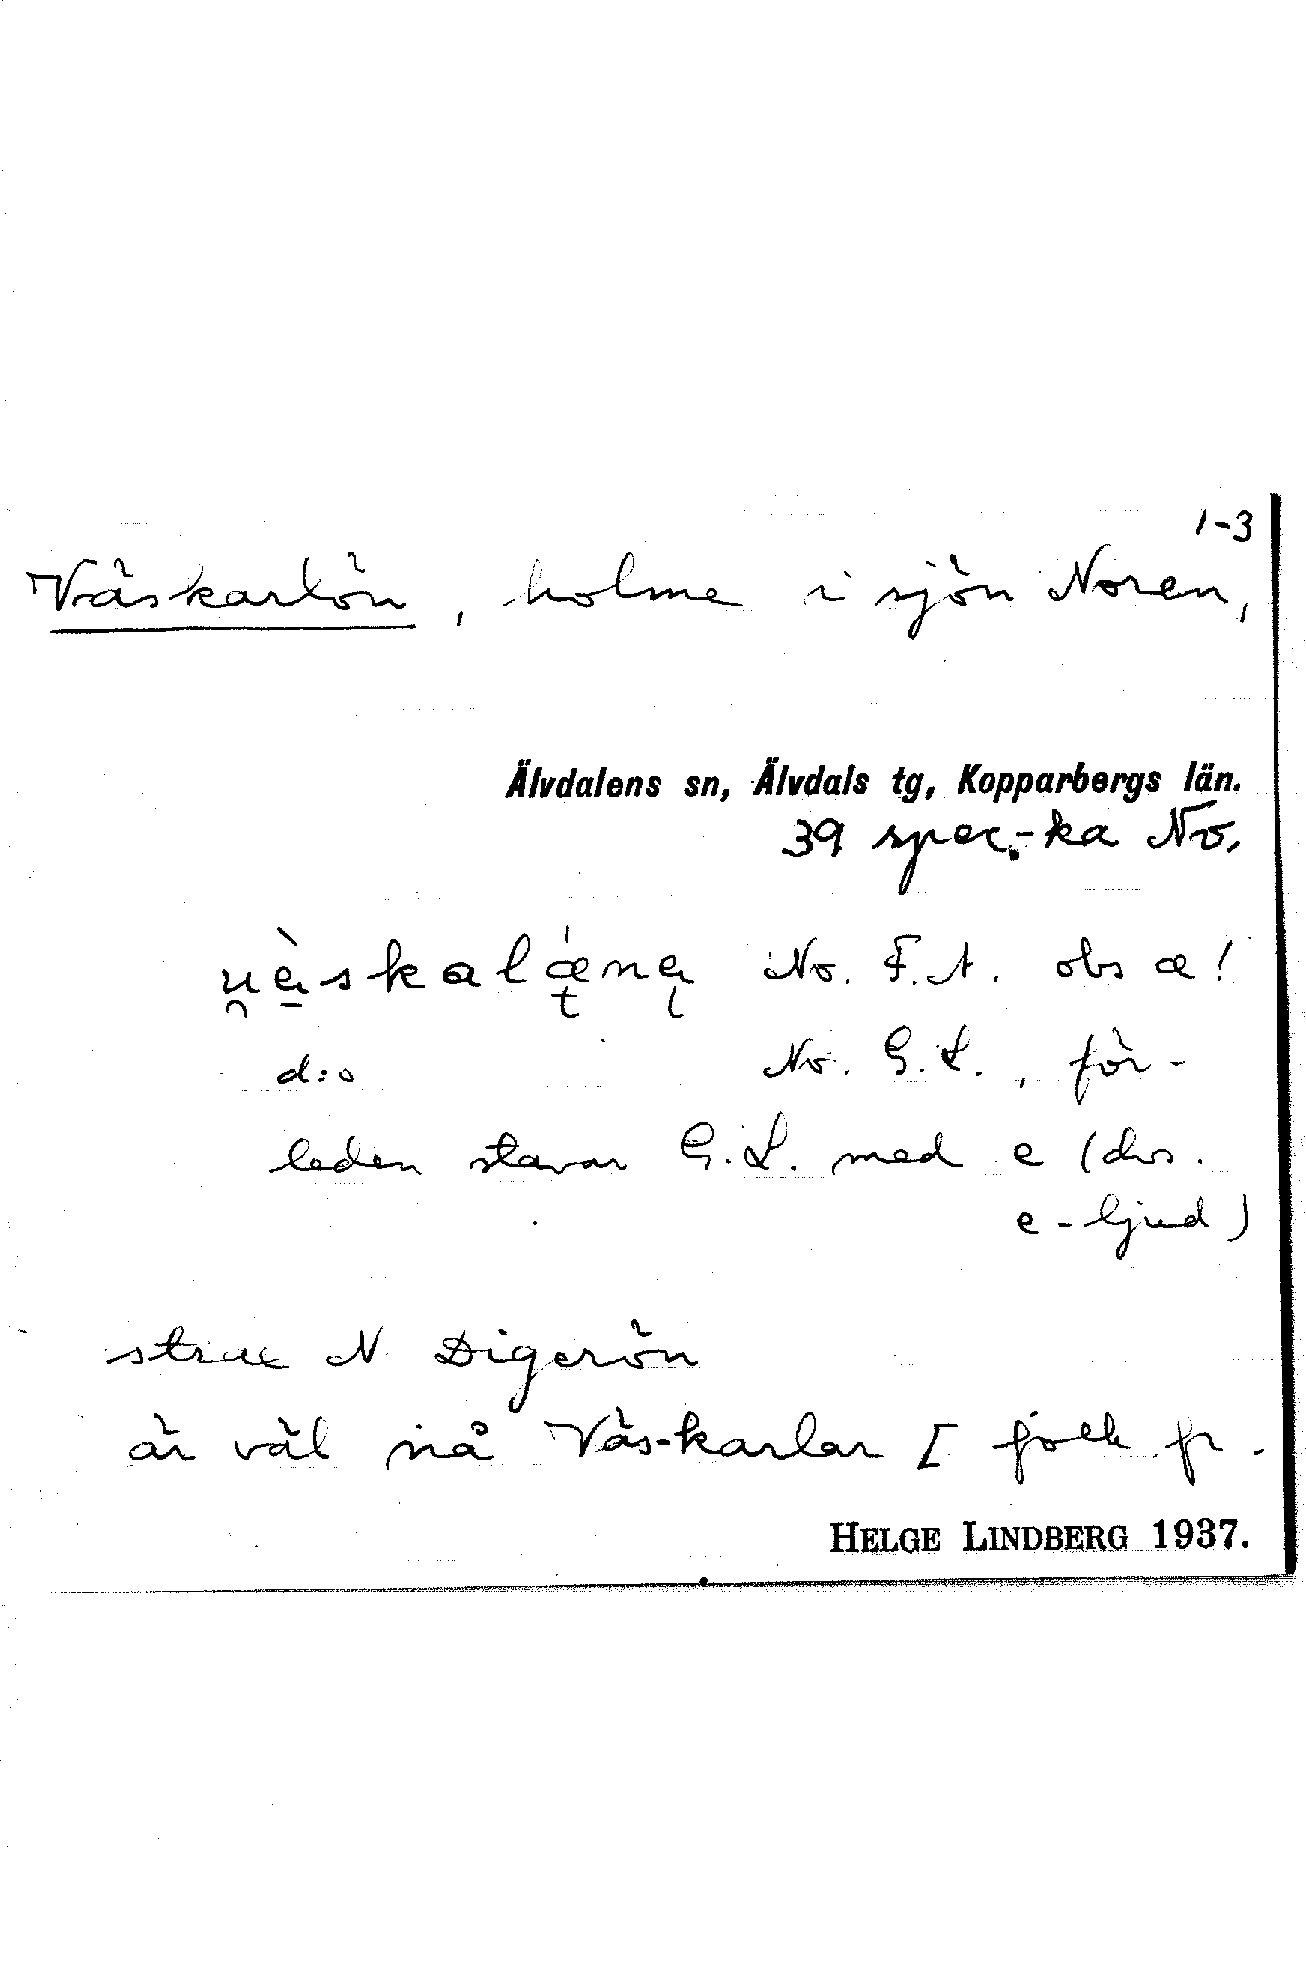 1-3
Väskarlön, holme i sjön Noren,
Älvdalens sn, Älvdals tg, Kopparbergs län.
39 spec.-ka No.
No. F.A. obs æ!
d:o No. G.L., för-
leden stavar G.L. med e (dvs.
e-ljud)
strax N Digerön
är väl nå Väs-karlar [ folk fr.
HELGE LINDBERG 1937.